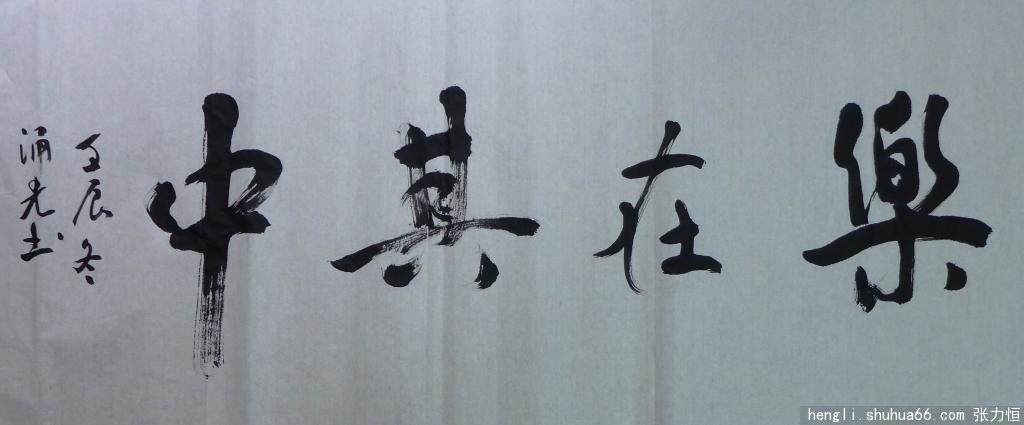 樂在其中
壬辰冬
涌光书
hengli.shuhua66.com 张力恒